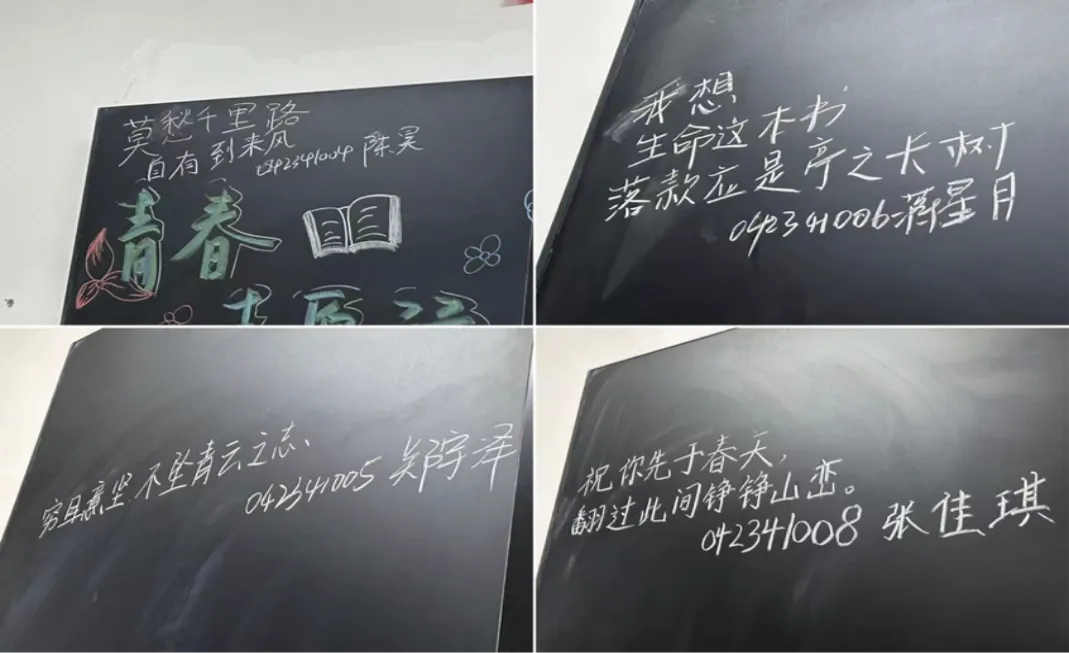 莫愁千里路
自有到来风
042341004 陈昊
青春
我想,
生命这本书
落款应是亭之长树
042341006 蒋星月
穷且益坚,不坠青云之志、
042341005 郑宇泽
祝你先于春天,
翻过此间铮铮山峦。
042341008 张佳琪